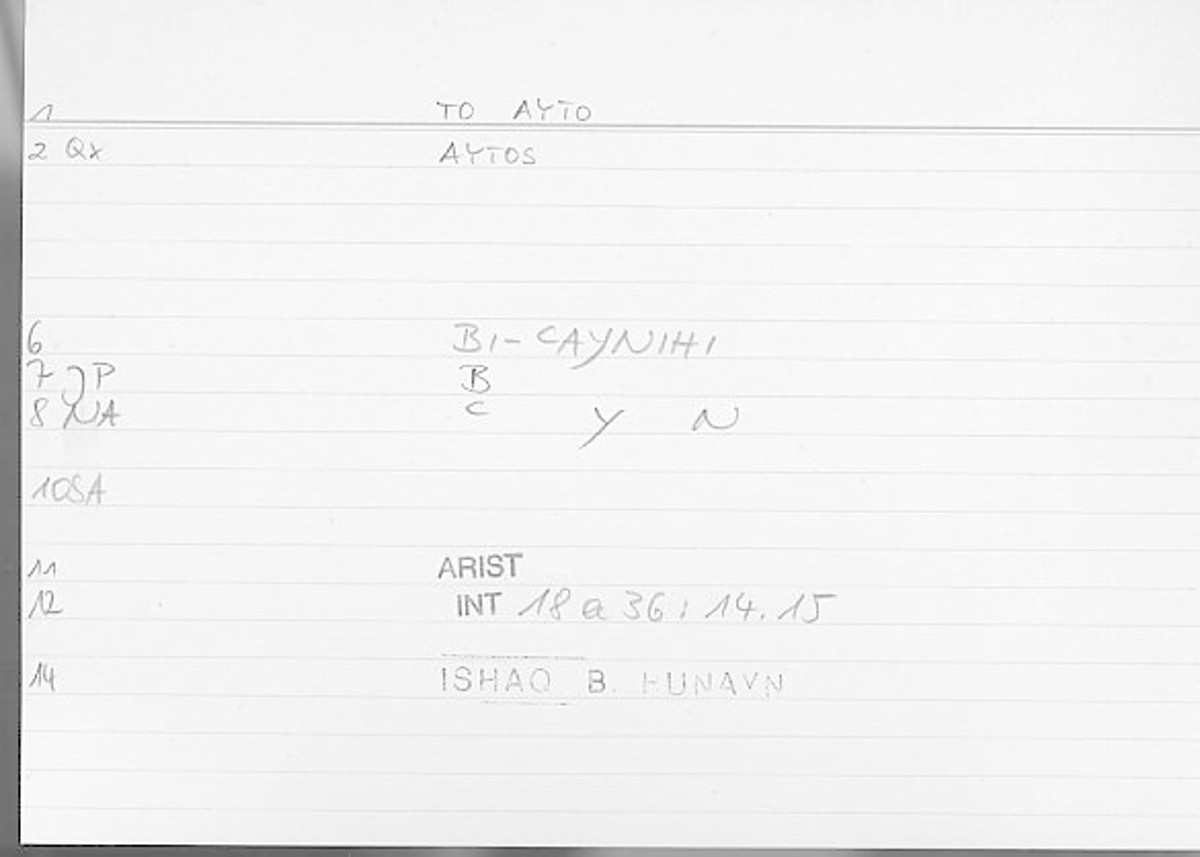 1 TO AYTO
2 Qx AYTOS
6 BI-CAYNIHI
7 JP B
8 NA C Y N
10SA
11 ARIST
12 INT 18 a 36 : 14.15
14 ISHAQ B. HUNAYN